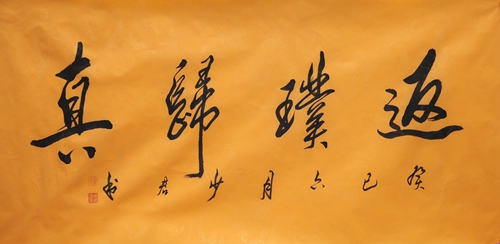 返璞歸真
癸巳六月少君书